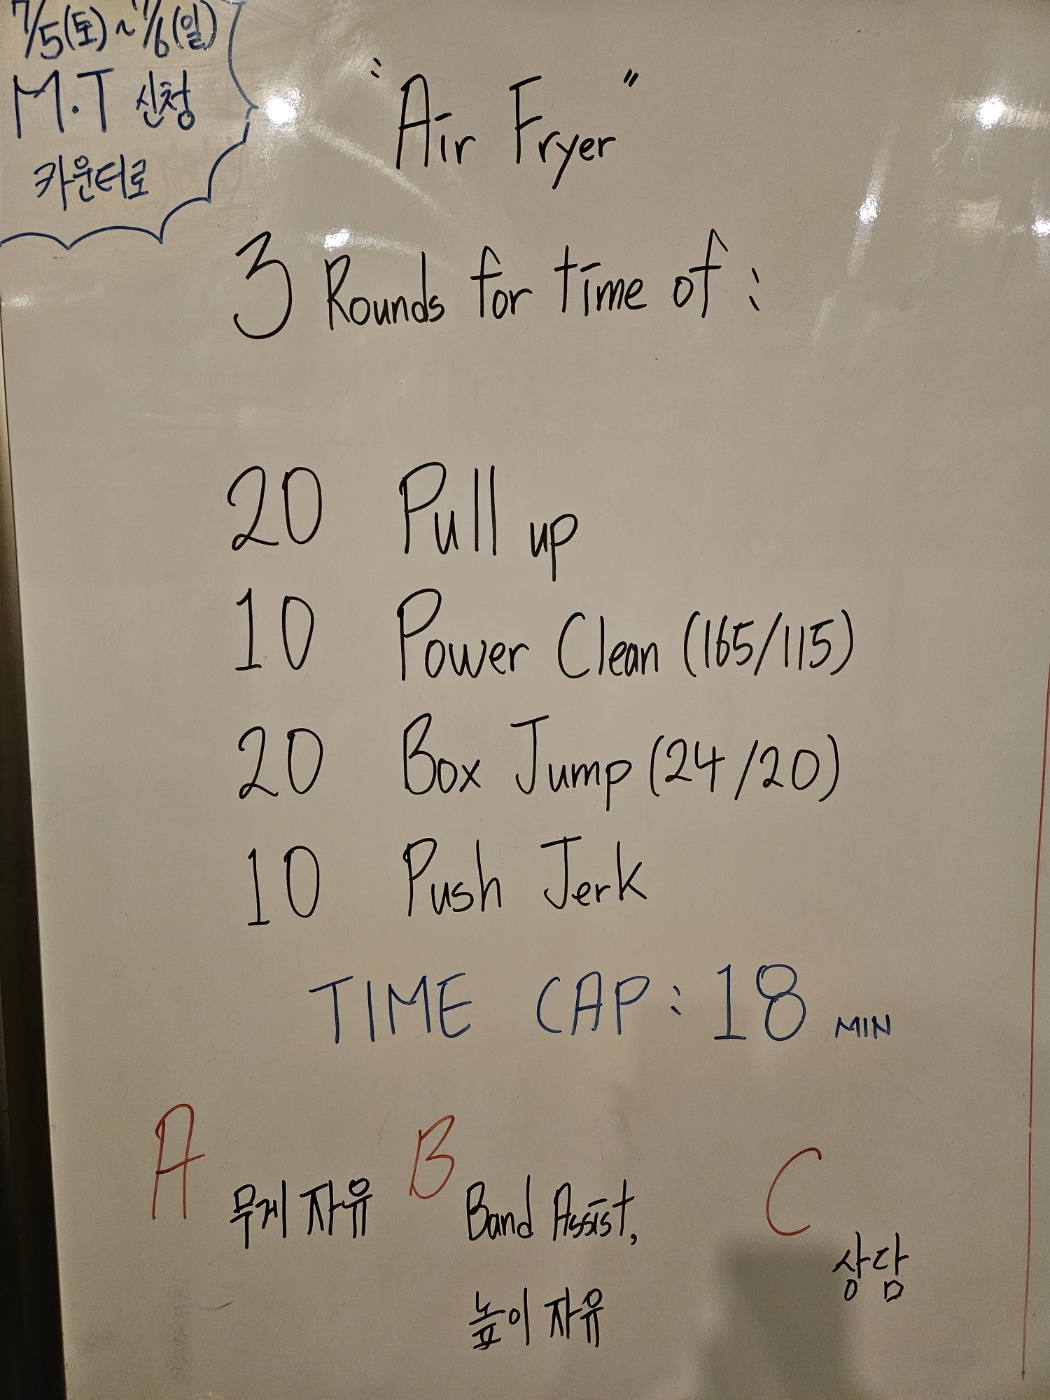 7/5(토)~7/6(일)
M.T 신청
카운터로
"Air Fryer"
3 Rounds for time of :
20 Pull up
10 Power Clean (165/115)
20 Box Jump (24/20)
10 Push Jerk
TIME CAP : 18 MIN
A 무게 자유
B Band Assist,
높이 자유
C 상담